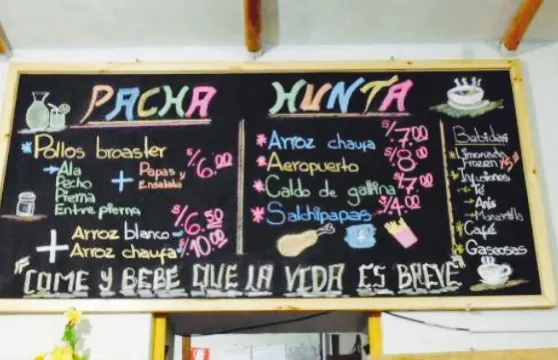 PACHA HUNTA
Pollos broaster S/6.00
Ala
Pecho
Pierna
Entre pierna
+ Papas y
Ensalada
S/6.50
+ Arroz blanco
Arroz chaufa S/10.00
Arroz chaufa S/7.00
Aeropuerto S/8.00
Caldo de gallina S/7.00
Salchipapas S/4.00
Bebidas
Limonada
Frozen
Infusiones
Té
Anís
Manzanilla
Café
Gaseosas
"COME Y BEBE QUE LA VIDA ES BREVE"